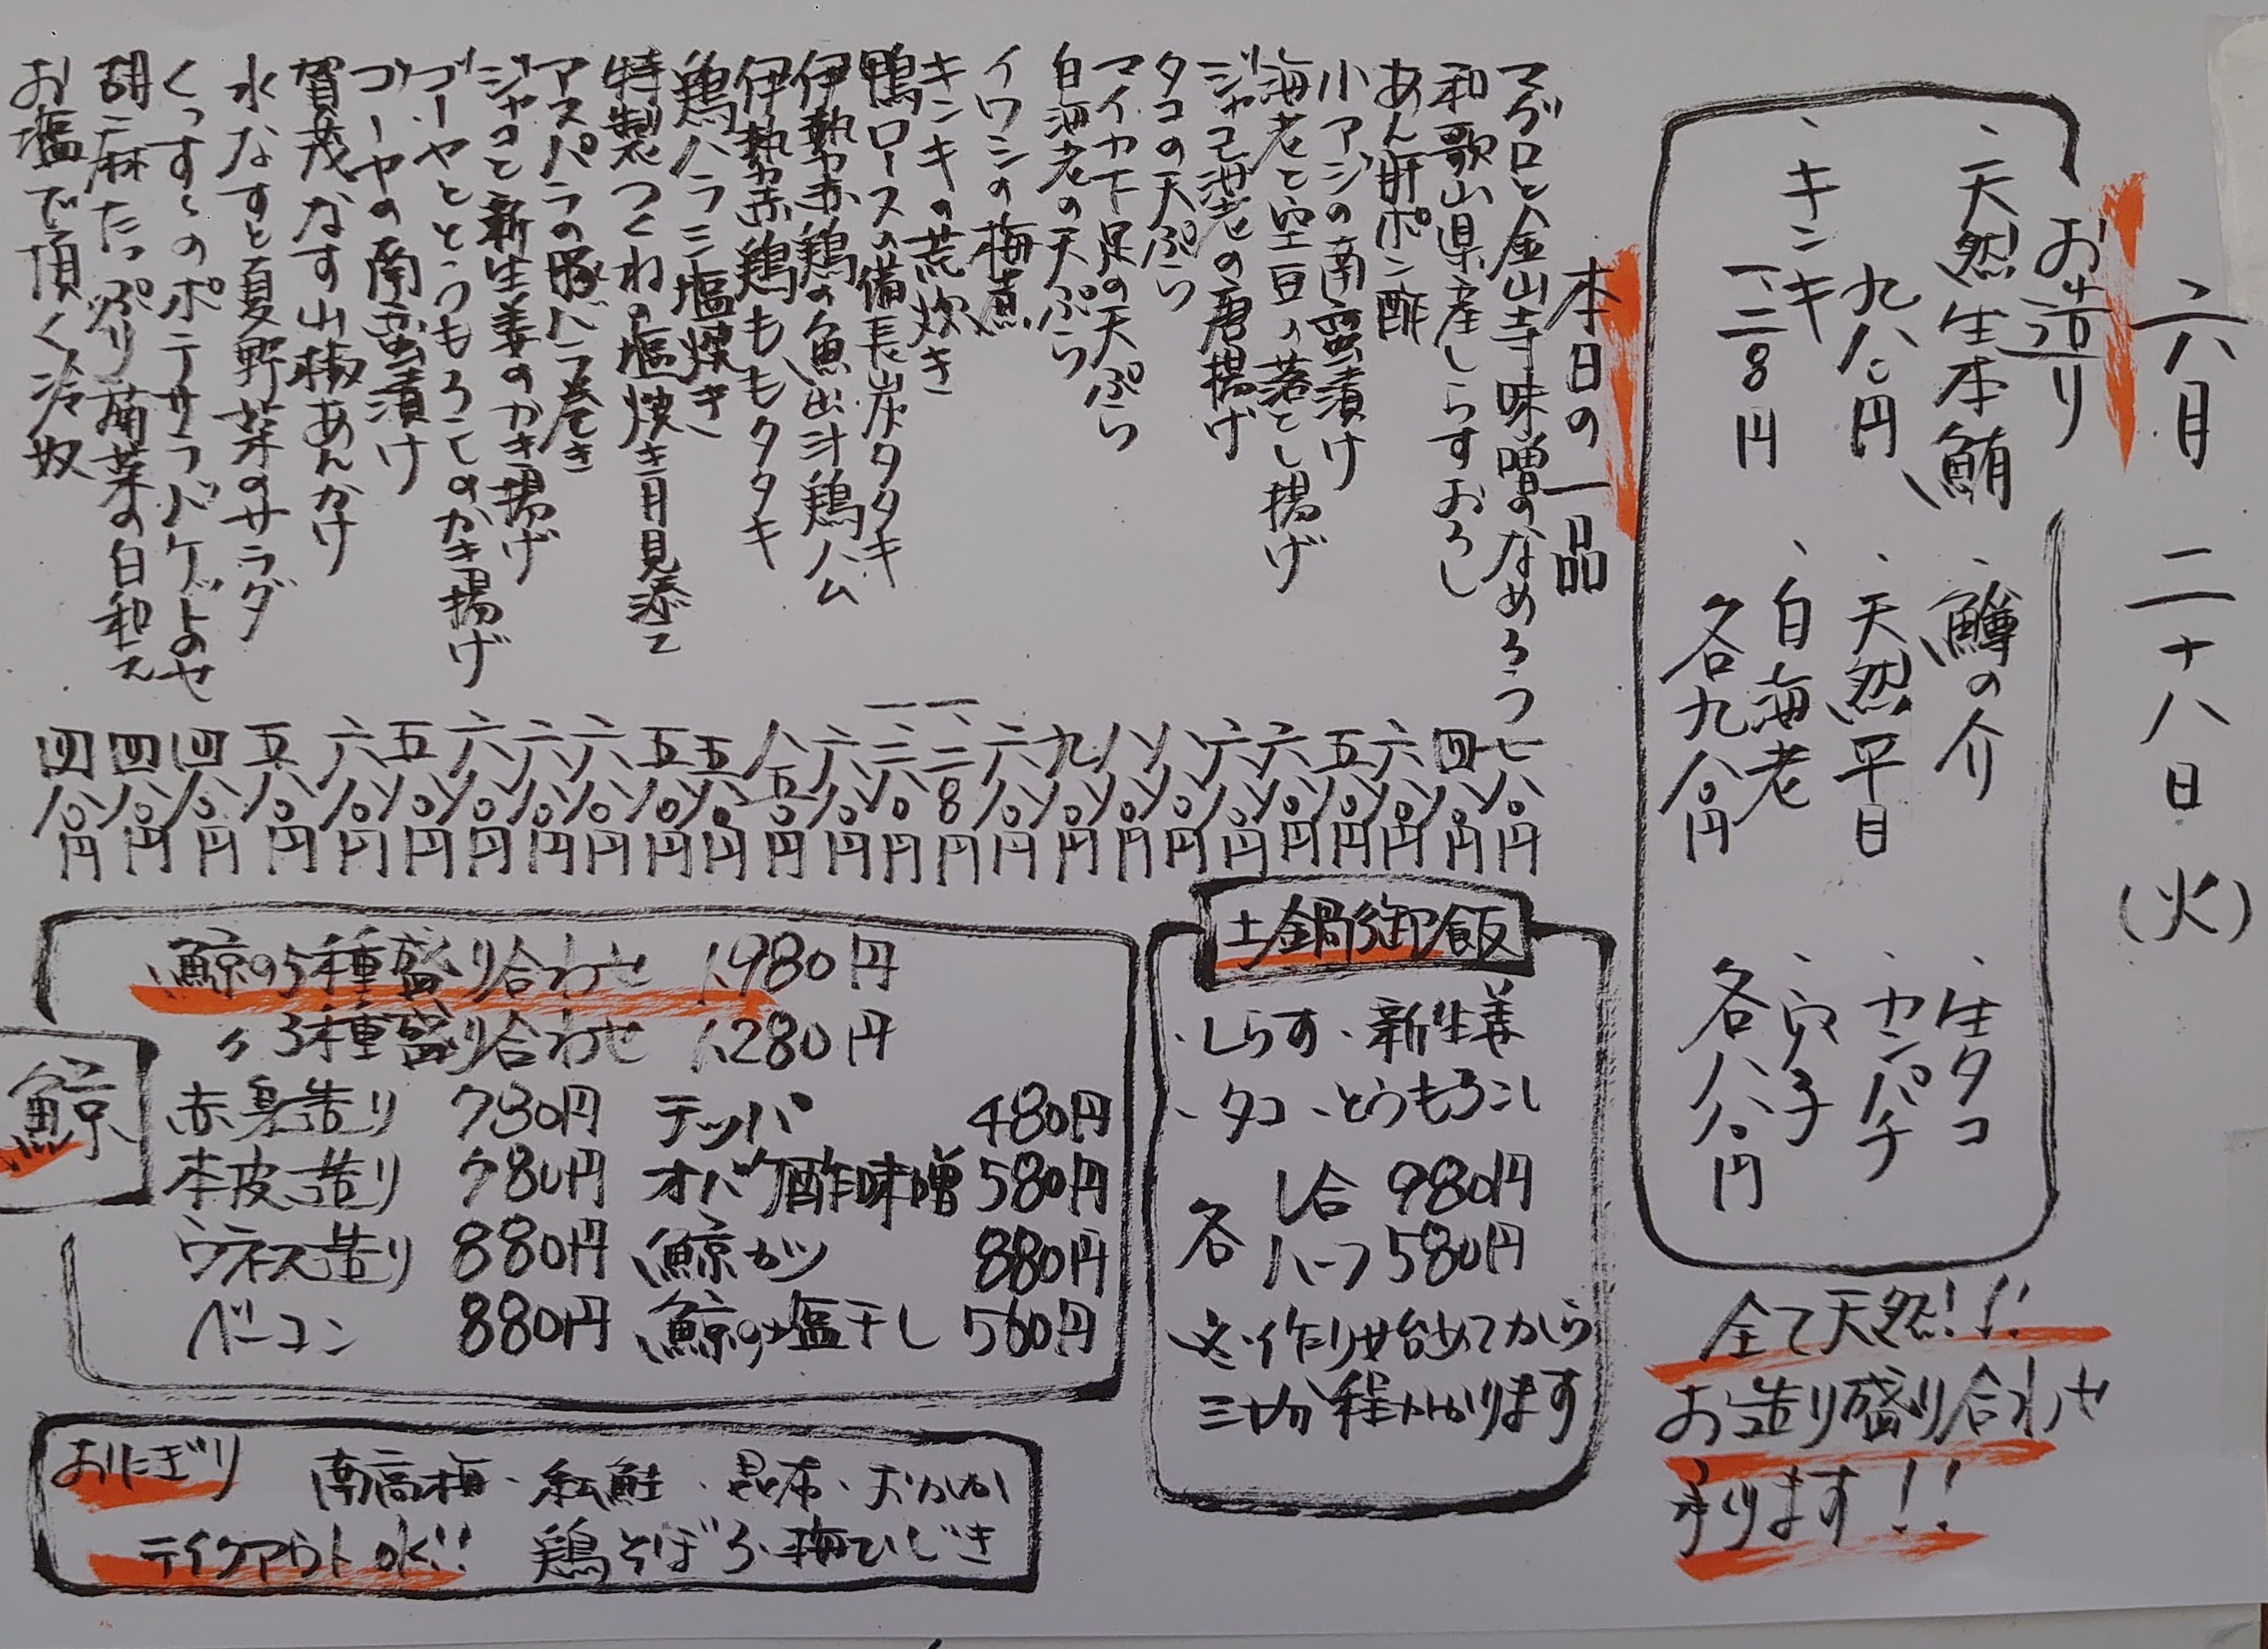 六月 二十八日(火)
お造り
、天然生本鮪
九八〇円
、キンキ
一、二八〇円
、鱒の介
、天然平目
、白海老
各九八〇円
、生タコ
、カンパチ
、穴子
各八八〇円
全て天然!!
お造り盛り合わせ
承ります!!
本日の一品
マグロと金山寺味噌のなめろう 七八〇円
和歌山県産しらすおろし 四八〇円
あん肝ポン酢 六八〇円
小アジの南蛮漬け 五八〇円
海老と空豆の落とし揚げ 六八〇円
ジャコ海老の唐揚げ 六八〇円
タコの天ぷら 八八〇円
マイカ下足の天ぷら 八八〇円
白海老の天ぷら 九八〇円
イワシの梅煮 六八〇円
キンキの荒炊き 一、二八〇円
鴨ロースの備長炭タタキ
伊勢赤鶏の魚出汁鶏ハム 六八〇円
伊勢赤鶏ももタタキ
鶏ハラミ塩焼き 五八〇円
特製つくねの塩焼き月見添え 五八〇円
アスパラの豚バラ巻き 六八〇円
ジャコと新生姜のかき揚げ 六八〇円
ゴーヤととうもろこしのかき揚げ 六八〇円
ゴーヤの南蛮漬け 五八〇円
賀茂なす山椒あんかけ 六八〇円
水なすと夏野菜のサラダ 五八〇円
くっすぐのポテサラバゲットのせ 四八〇円
胡麻たっぷり菊菜の白和え 四八〇円
お塩で頂く冷奴 四八〇円
土鍋御飯
・しらす・新生姜
・タコ・とうもろこし
各 1合 980円
ハーフ 580円
※作り始めてから
三十分程かかります
鯨
鯨の5種盛り合わせ 1,980円
〃 3種盛り合わせ 1,280円
赤身造り 780円 テッパ 480円
本皮造り 780円 オバケ酢味噌 580円
ウネス造り 880円 鯨カツ 880円
ベーコン 880円 鯨の塩干し 560円
おにぎり 南高梅・紅鮭・昆布・おかか
テイクアウトOK!! 鶏そぼろ・梅ひじき